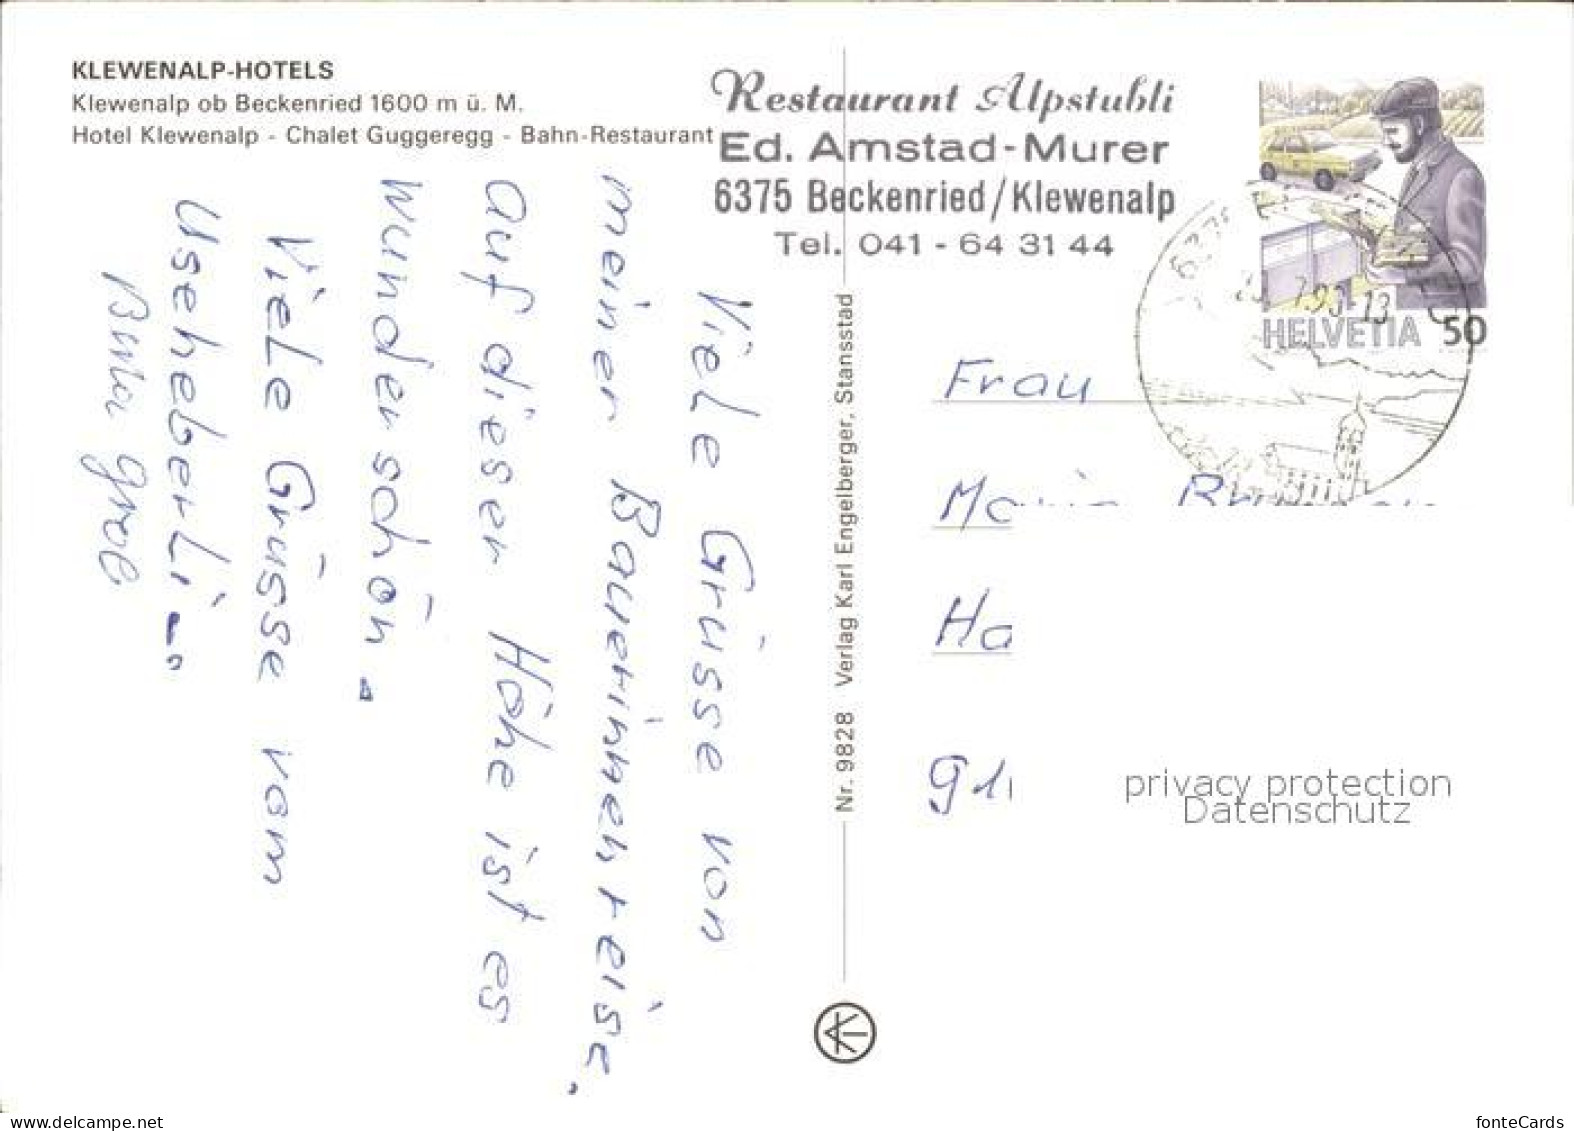 KLEWENALP-HOTELS
Klewenalp ob Beckenried 1600 m ü. M.
Hotel Klewenalp - Chalet Guggeregg - Bahn-Restaurant
Restaurant Alpstubli
Ed. Amstad-Murer
6375 Beckenried/Klewenalp
Tel. 041 - 64 31 44
HELVETIA 50
Viele Grüsse von
meiner Bauerinnenreise.
Auf dieser Höhe ist es
wunderschön.
Viele Grüsse vom
Useheberli
Nr. 9828 Verlag Karl Engelberger, Stansstad
Frau
privacy protection
Datenschutz
www.delcampe.net
fonteCards